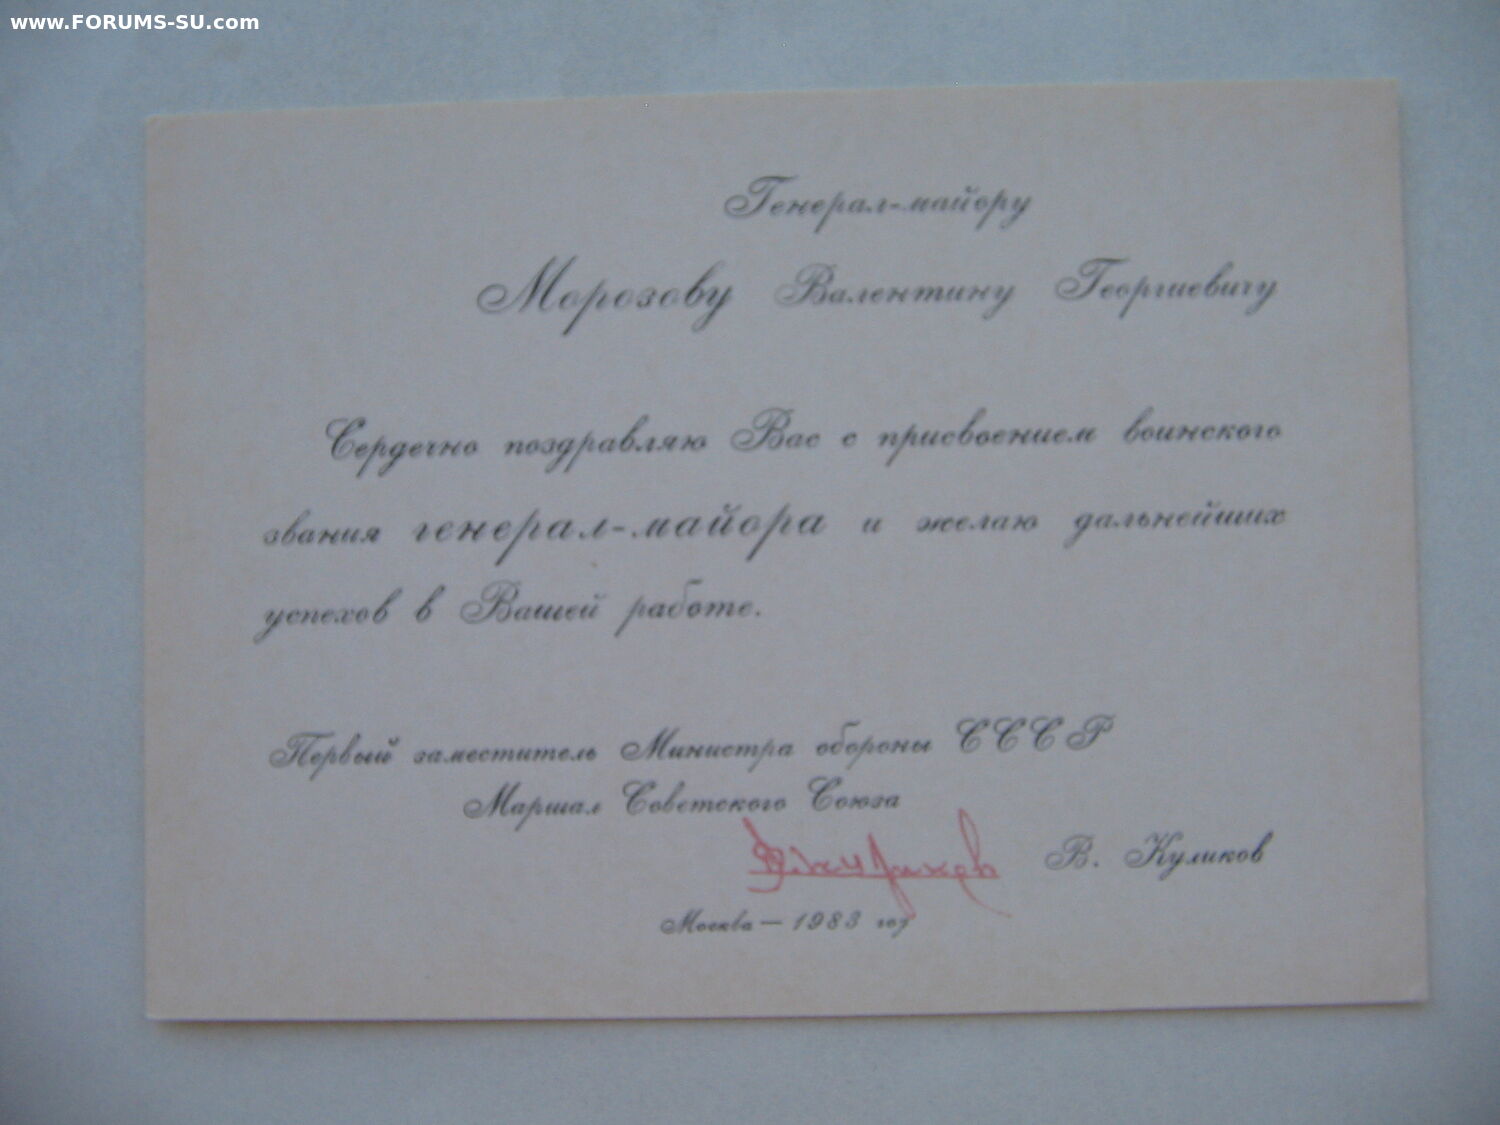 www.FORUMS-SU.com
Генерал-майору
Морозову Валентину Георгиевичу
Сердечно поздравляю Вас с присвоением воинского
звания генерал-майора и желаю дальнейших
успехов в Вашей работе.
Первый заместитель Министра обороны СССР
Маршал Советского Союза
В. Куликов
В. Куликов
Москва — 1983 год